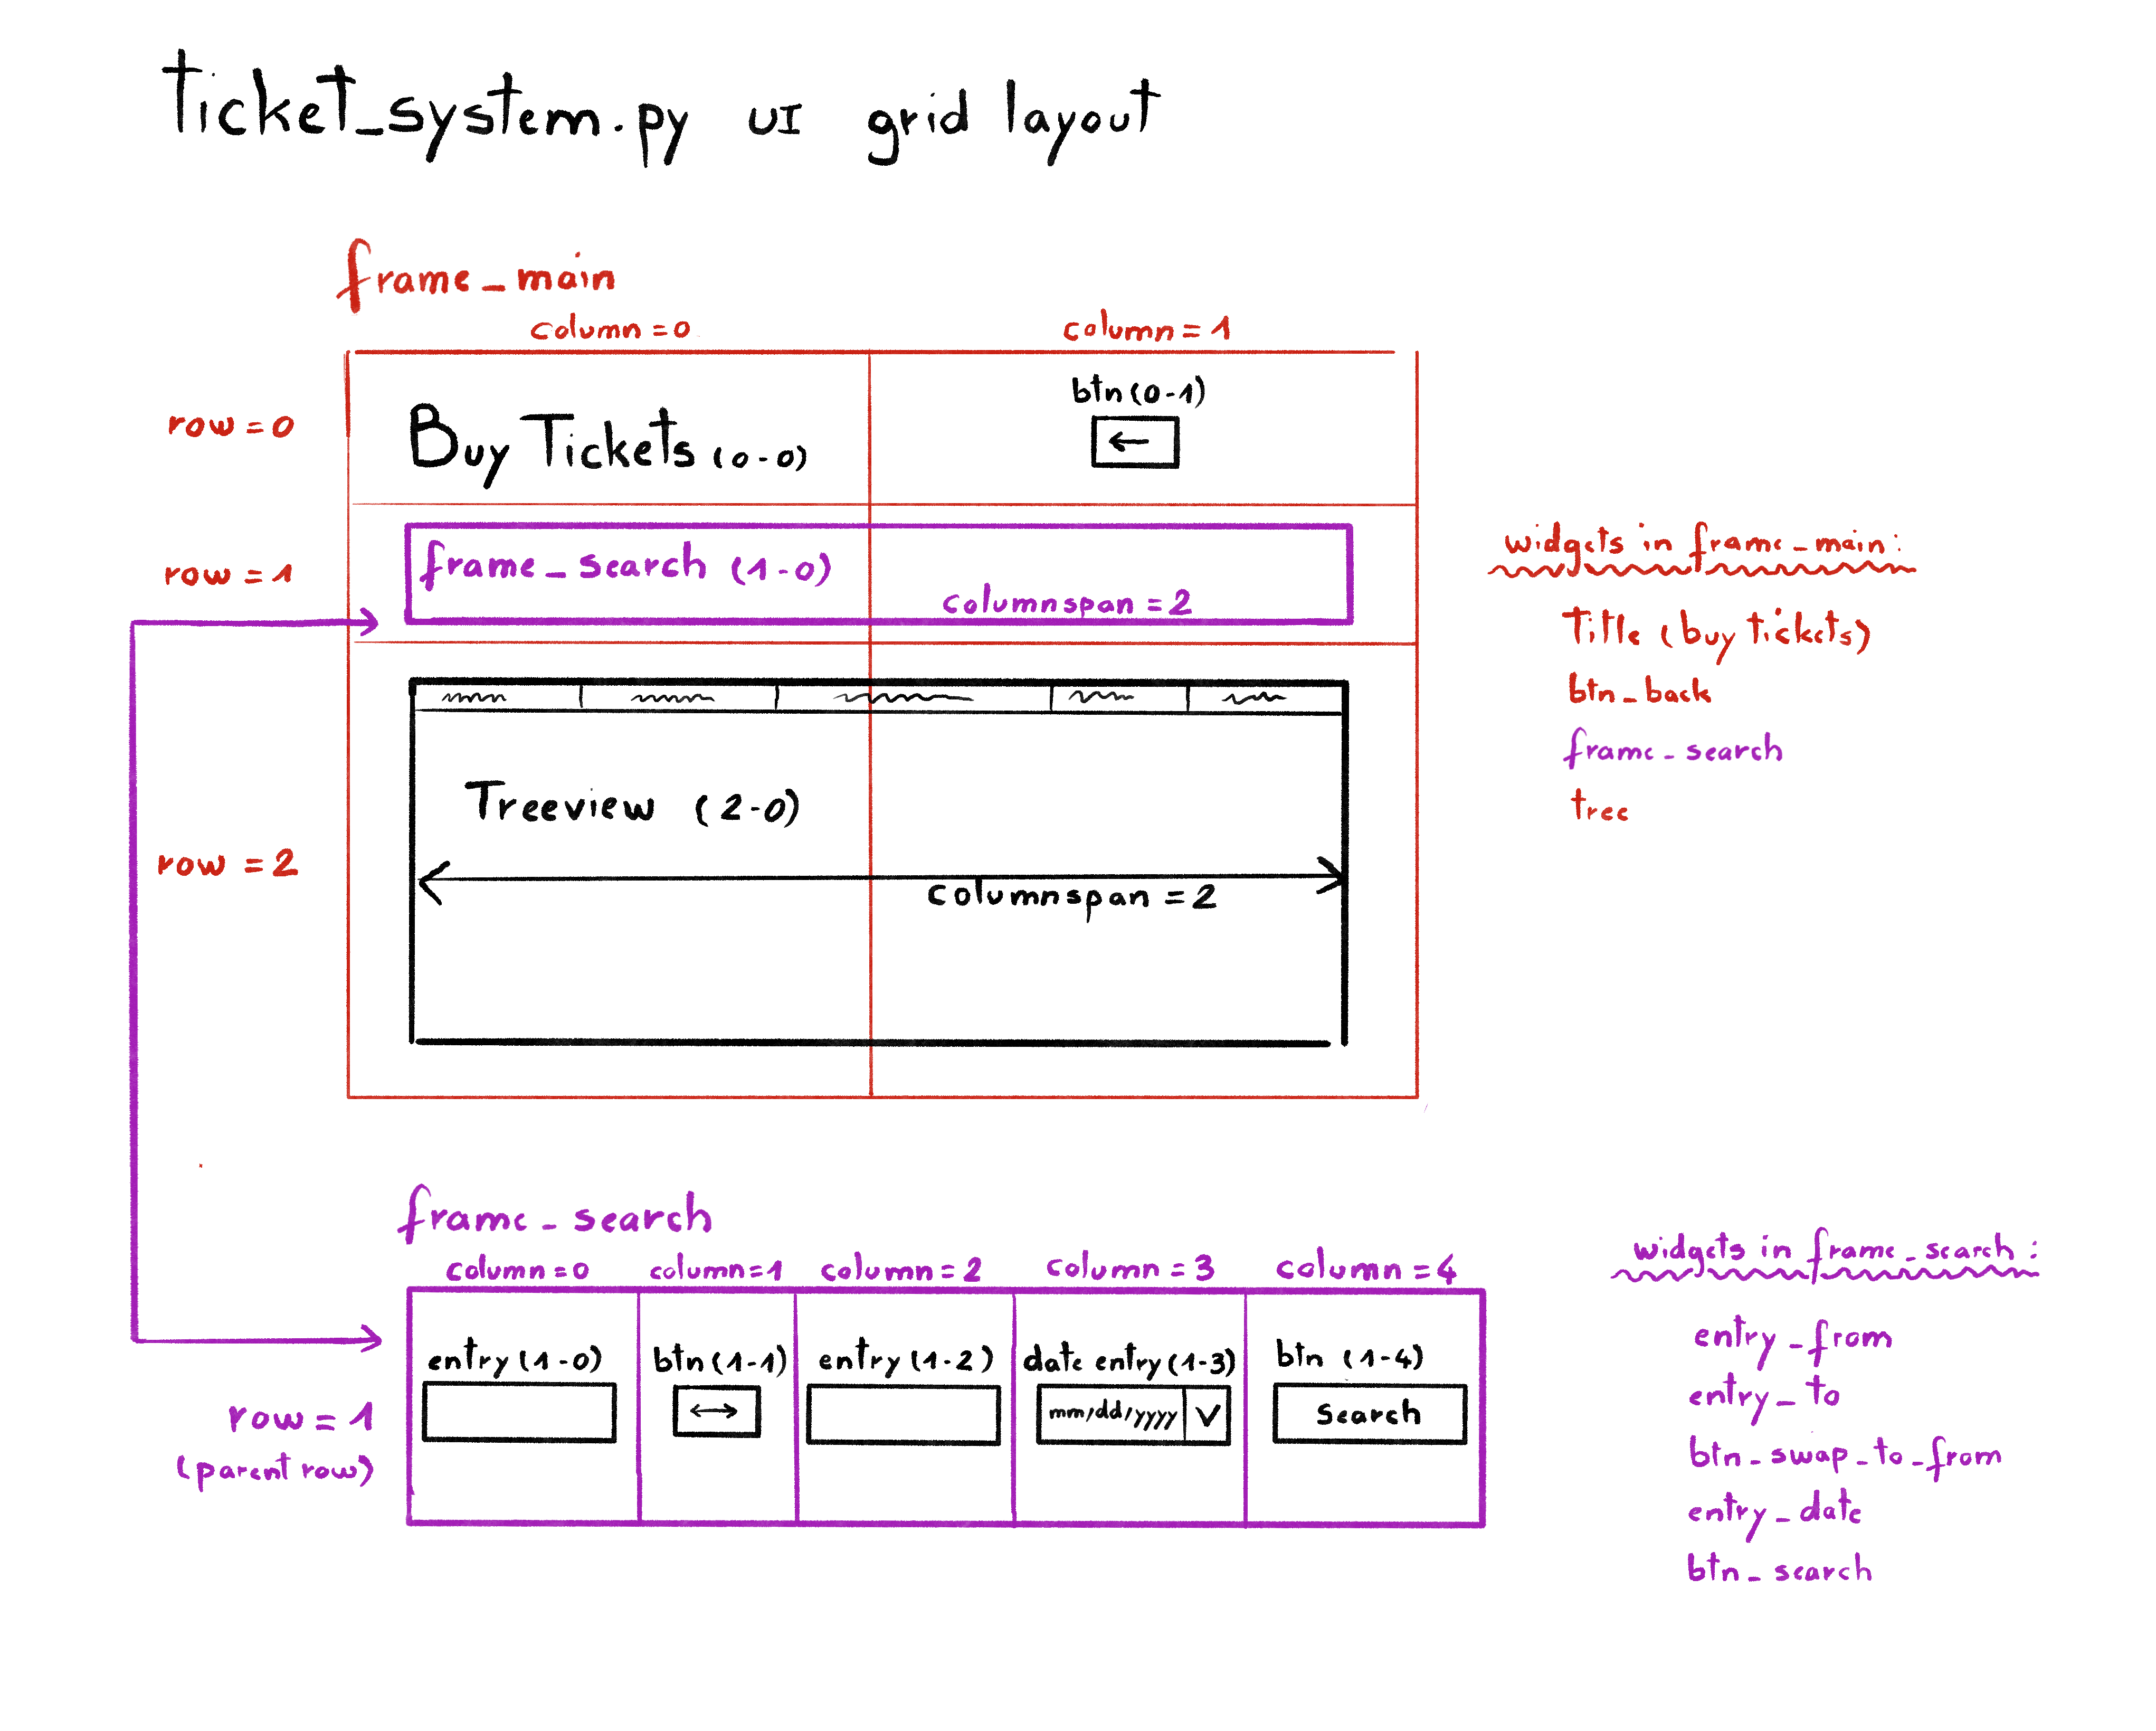 ticket_system.py UI grid layout
frame_main
column=0 column=1
row=0
Buy Tickets (0-0)
btn(0-1)
←
row=1
frame_search (1-0)
columnspan=2
row=2
Treeview (2-0)
columnspan=2
widgets in frame_main:
Title (buy tickets)
btn_back
frame_search
tree
frame_search
column=0 column=1 column=2 column=3 column=4
row=1
(parent row)
entry(1-0) btn(1-1) entry(1-2) date entry(1-3) btn (1-4)
↔ mm/dd/yyyy V Search
widgets in frame_search:
entry_from
entry_to
btn_swap_to_from
entry_date
btn_search